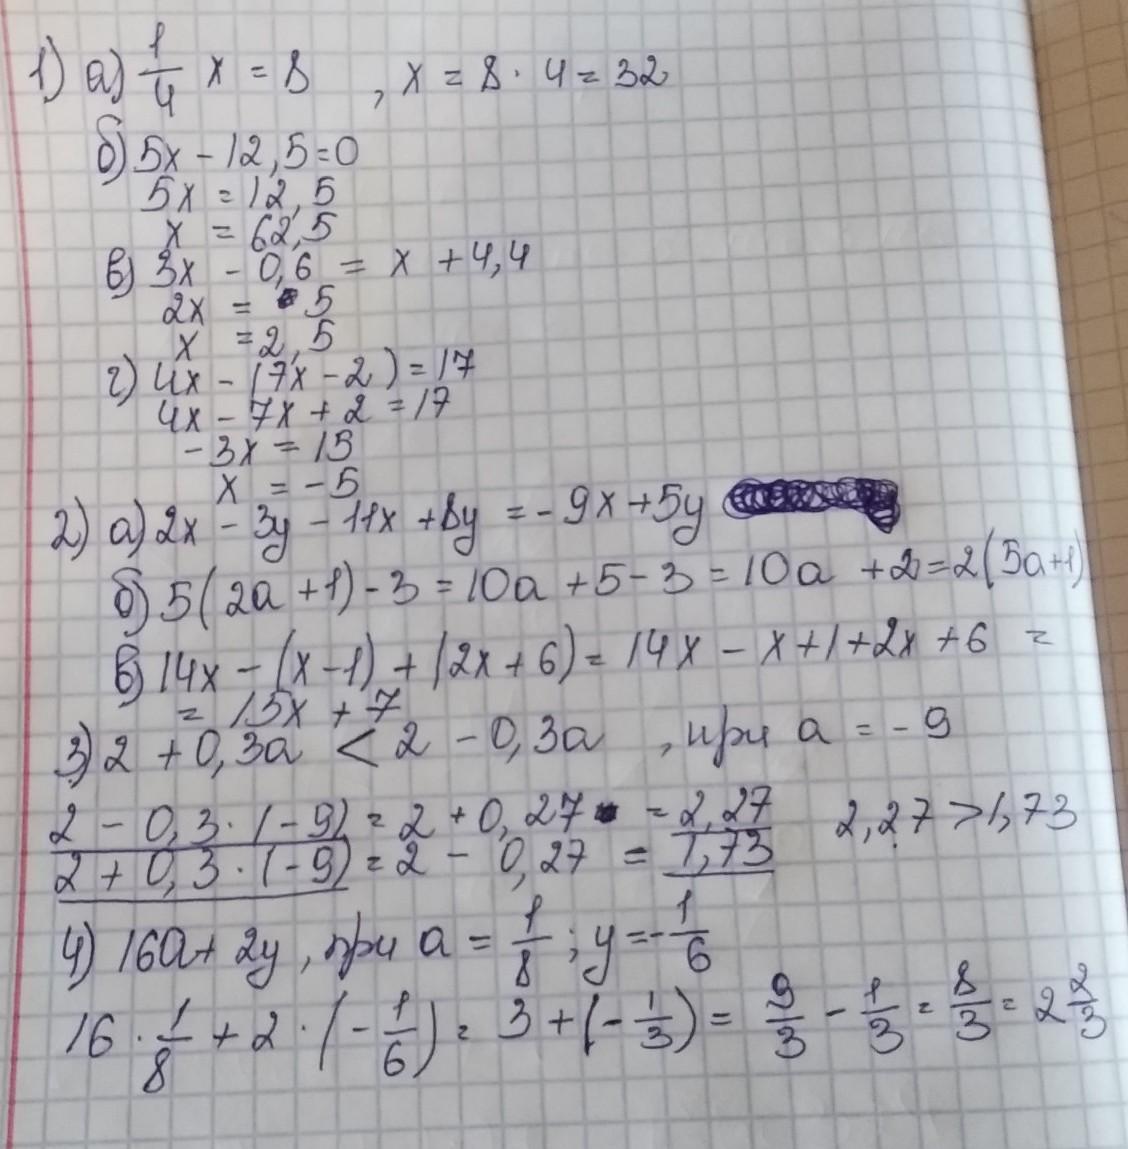 1) а) 1/4 x = 8 , x = 8 · 4 = 32
б) 5x - 12,5 = 0
5x = 12,5
x = 62,5
в) 3x - 0,6 = x + 4,4
2x = 5
x = 2,5
г) 4x - (7x - 2) = 17
4x - 7x + 2 = 17
- 3x = 15
x = - 5
2) а) 2x - 3y - 11x + 8y = - 9x + 5y
б) 5(2a + 1) - 3 = 10a + 5 - 3 = 10a + 2 = 2(5a+1)
в) 14x - (x - 1) + (2x + 6) = 14x - x + 1 + 2x + 6 =
= 15x + 7
3) 2 + 0,3a < 2 - 0,3a , при a = - 9
2 - 0,3 · (- 9) = 2 + 0,27 = 2,27 2,27 > 1,73
2 + 0,3 · (- 9) = 2 - 0,27 = 1,73
4) 16a + 2y , при a = 1/8 ; y = - 1/6
16 · 1/8 + 2 · (- 1/6) = 3 + (- 1/3) = 9/3 - 1/3 = 8/3 = 2 2/3